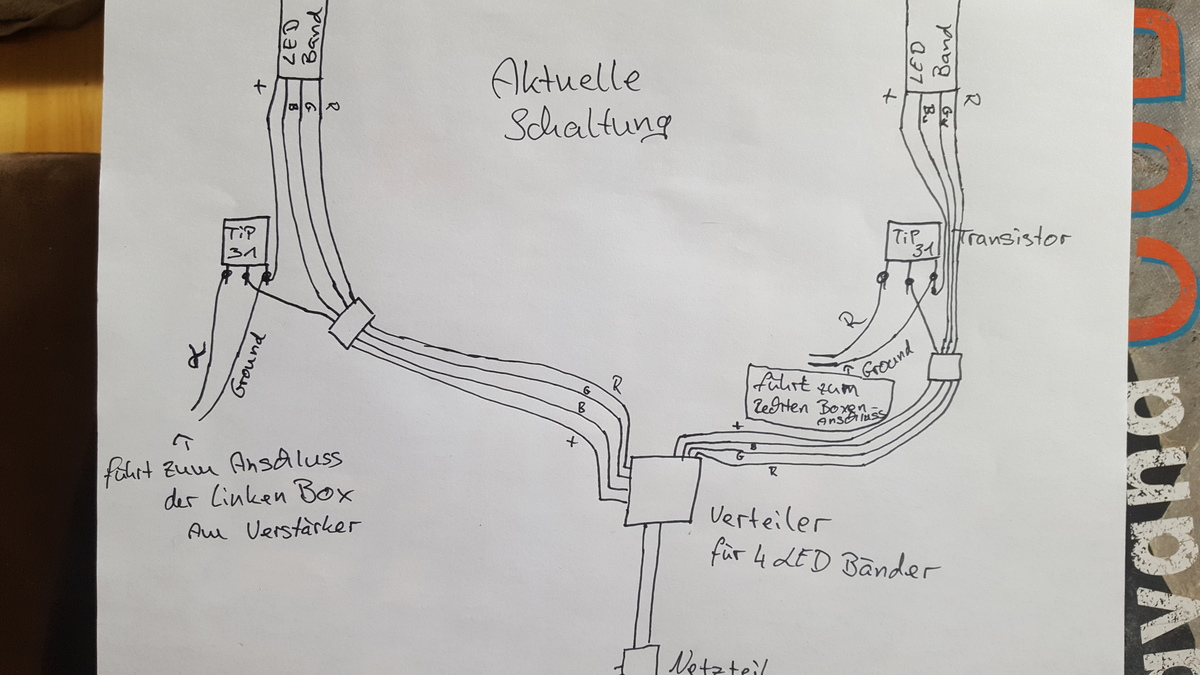 LED
Band
LED
Band
Aktuelle
Schaltung
+
B
G
R
+
B
Gr
R
TiP
31
TiP
31
Transistor
R
Ground
R
Ground
führt zum
Rechten Boxen-
Anschluss
G
R
B
+
+
B
G
R
führt zum Anschluss
der Linken Box
Am Verstärker
Verteiler
für 4 LED Bänder
Netzteil